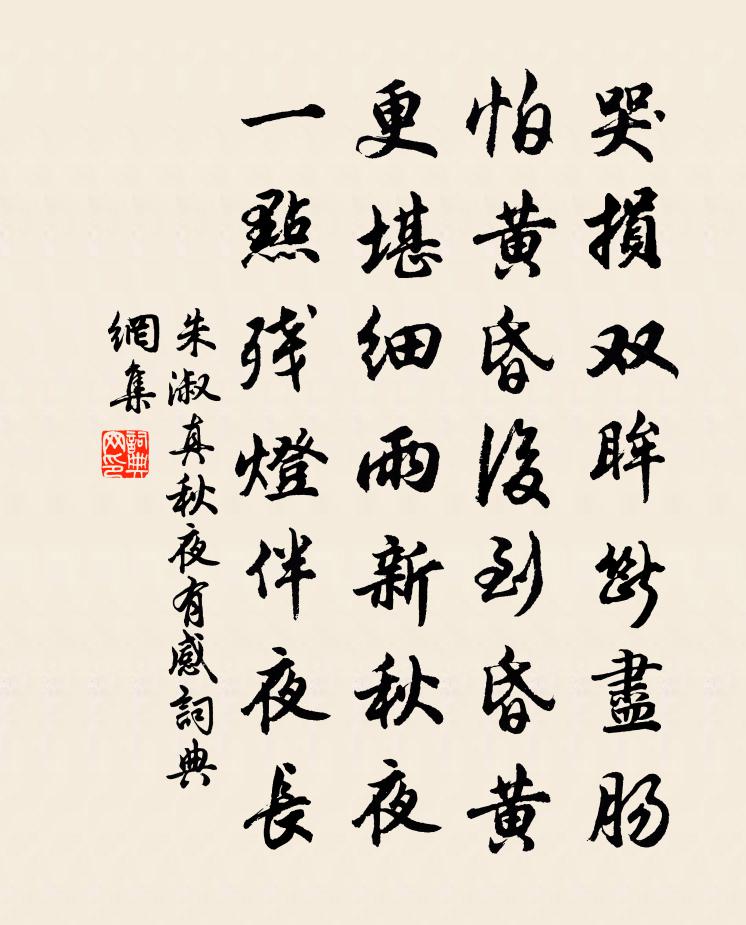 哭損双眸断盡肠
怕黄昏後到昏黄
更堪細雨新秋夜
一點残燈伴夜長
朱淑真秋夜有感詞典
網集
詞典
网印